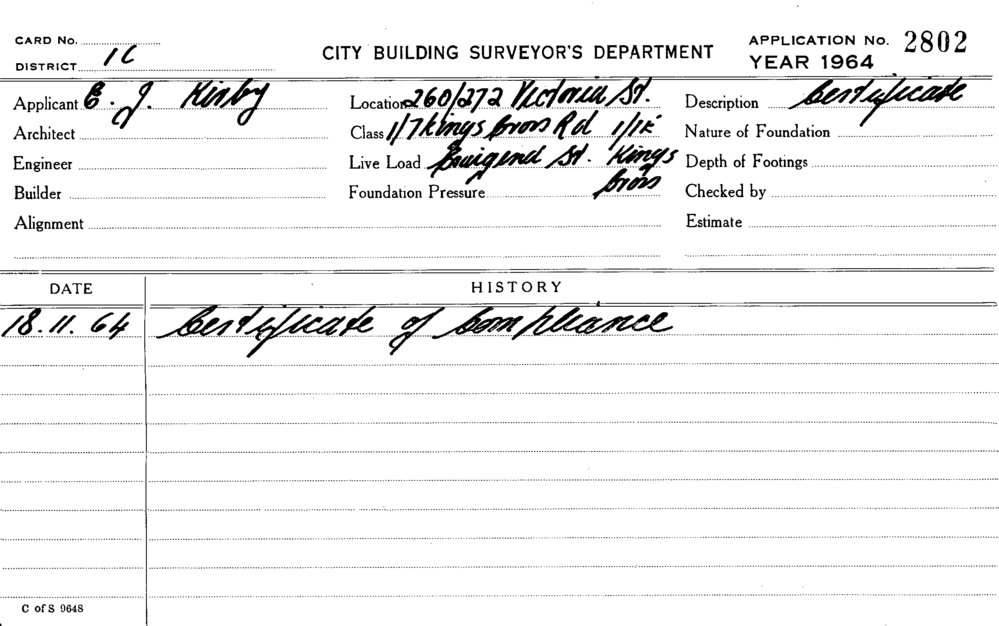 CARD No.
DISTRICT 1C
CITY BUILDING SURVEYOR'S DEPARTMENT
APPLICATION No. 2802
YEAR 1964
Applicant E. J. Kirby
Location 260/272 Victoria St.
Description Certificate
Architect
Class 1/7 Kings Cross Rd 1/1E
Nature of Foundation
Engineer
Live Load St. Kings
Depth of Footings
Builder
Foundation Pressure Cross
Checked by
Alignment
Estimate
DATE
HISTORY
18.11.64 Certificate of Compliance
C of S 9648